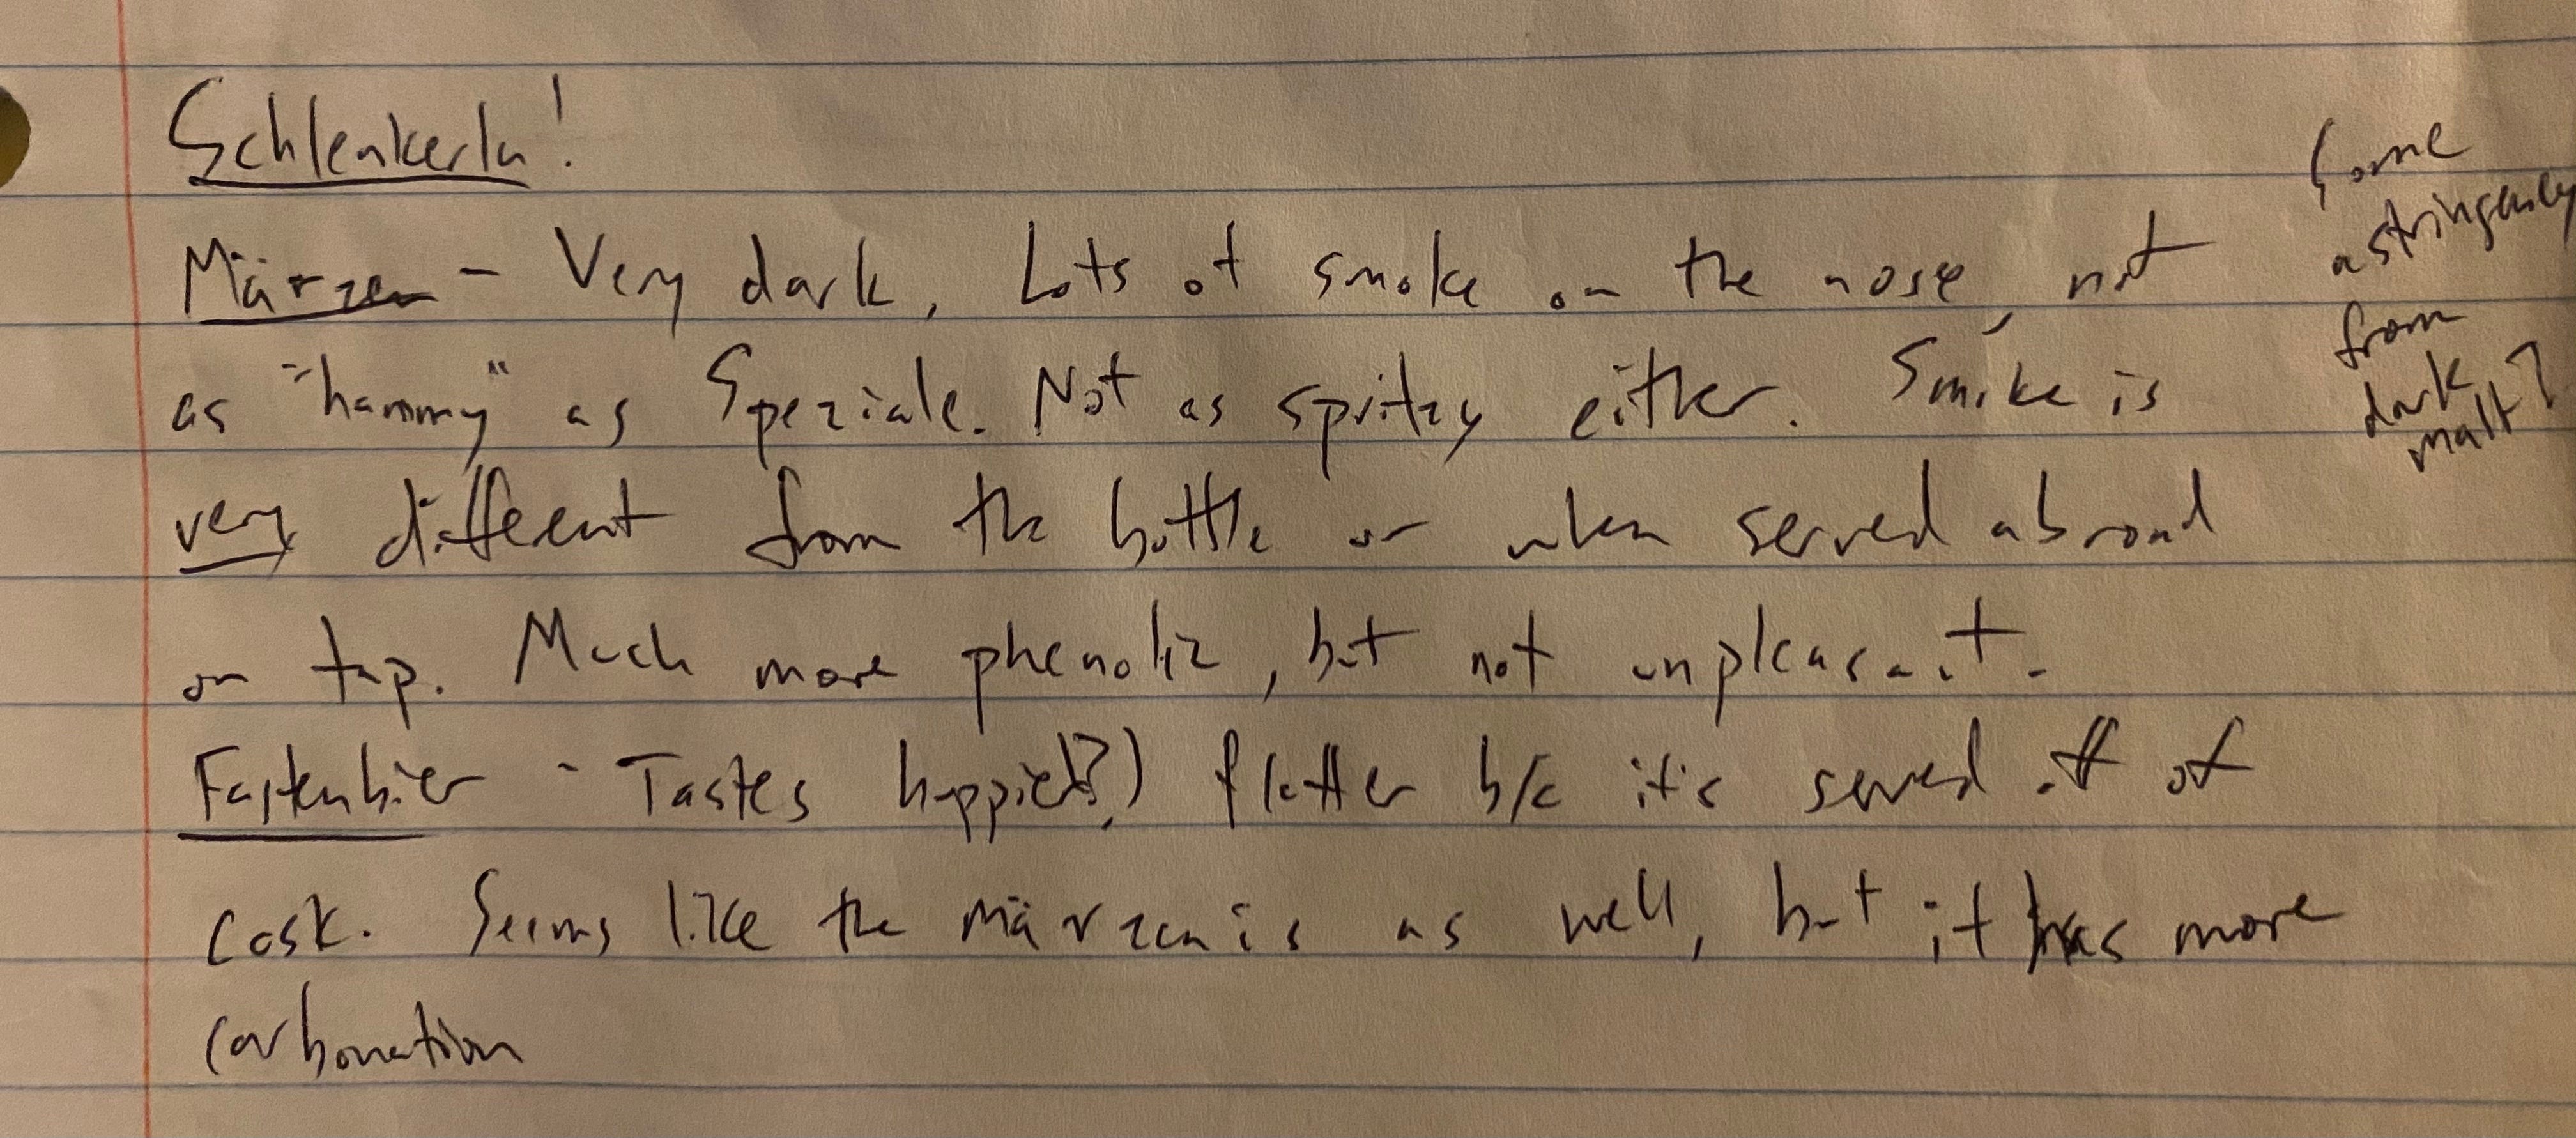 Schlenkerla!
Märzen - Very dark, Lots of smoke on the nose, not
as "hammy" as Speziale. Not as spritzy either. Smoke is
very different from the bottle or when served abroad
on tap. Much more phenolic, but not unpleasant.
Fastenbier - Tastes hoppier(?) flatter b/c it's served off of
cask. Seems like the Märzen is as well, but it has more
carbonation
Some
astringency
from
dark
malt?